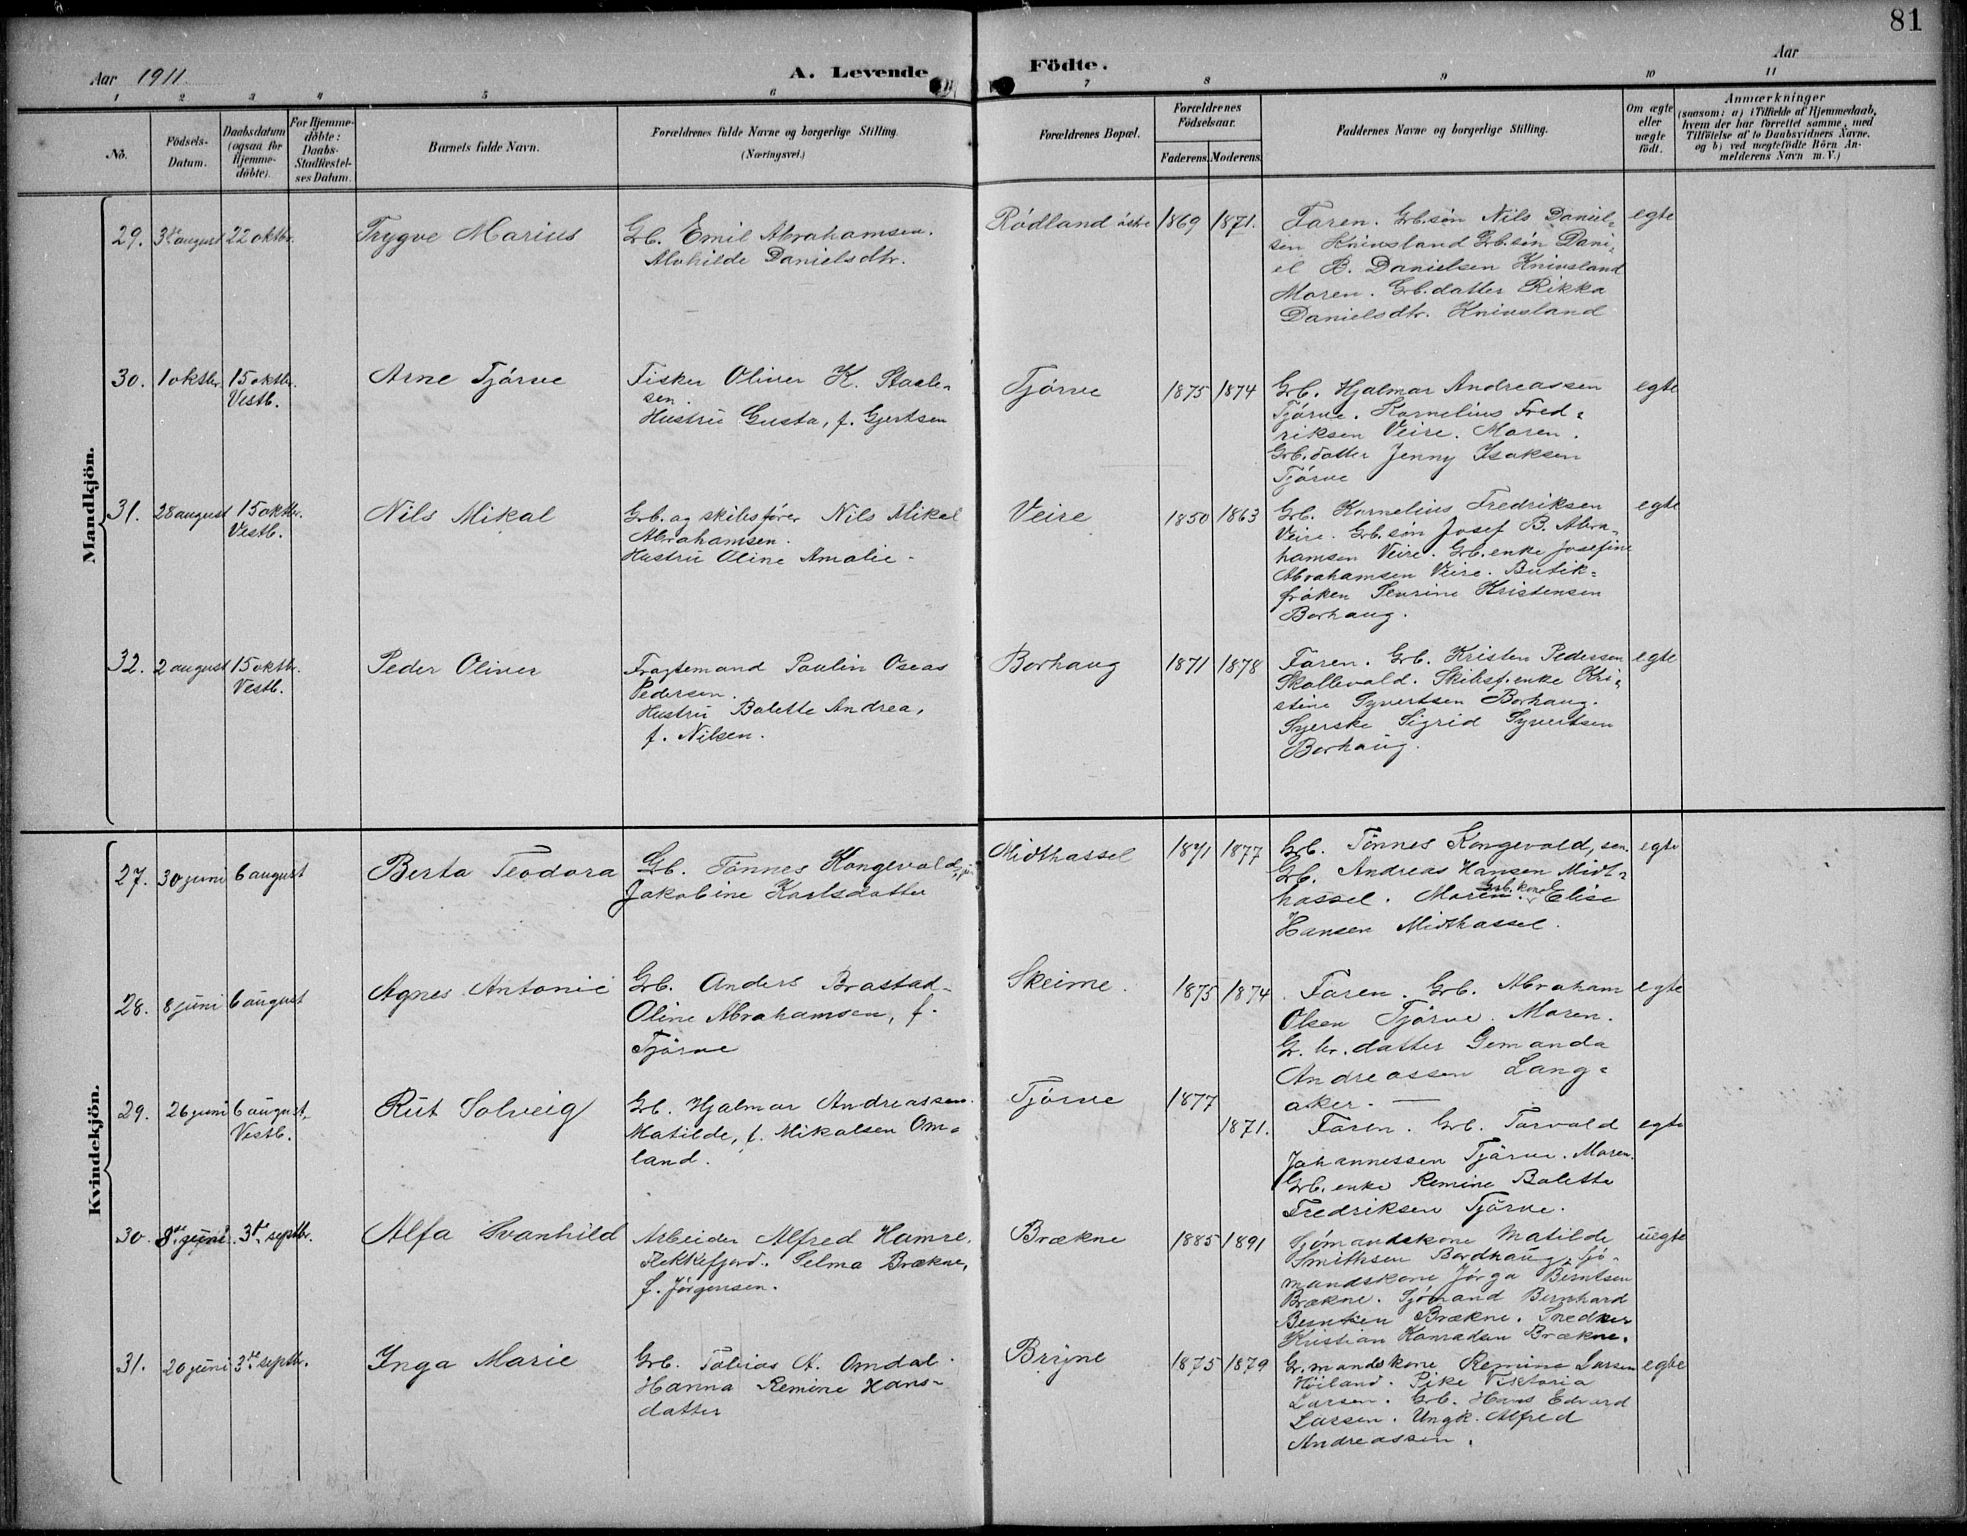 81
Aar 1911.
A. Levende
Födte.
Aar
1 2 3 4 5 6 7 8 9 10 11
No.
Födsels-
Datum.
Daabsdatum
(ogsaa for
Hjemme-
döbte).
For Hjemme-
döbte:
Daabs-
Stadfæstel-
ses Datum.
Barnets fulde Navn.
Forældrenes fulde Navne og borgerlige Stilling.
(Næringsvei.)
Forældrenes Bopæl.
Forældrenes
Födselsaar.
Faderens. Moderens.
Faddernes Navne og borgerlige Stilling.
Om ægte
eller
uægte
født.
Anmærkninger
(saasom: a) i Tilfælde af Hjemmedaab,
hvem der har forrettet samme, med
Tilföielse af to Daabsvidners Navne.
og b) ved uægtefödte Börn An-
melderens Navn m. V.)
Mandkjön.
29. 3te august 22 oktbr. Trygve Marius
Grb. Emil Abrahamsen.
Alvhilde Danielsdtr.
Rødland østre 1869 1871.
Faren. Grb.søn Nils Daniel-
sen Knivsland Grb.søn Dani-
el B. Danielsen Knivsland
Moren. Grb.datter Rikka
Danielsdtr. Knivsland
egte
30. 1 oktbr. 15 oktbr.
Vestb.
Arne Tjørve
Fisker Oliver K. Staale-
sen.
Hustru Gusta, f. Gjertsen
Tjørve 1875 1874
Grb. Hjalmar Andreassen
Tjørve. Kornelius Fred-
riksen Veire. Moren.
Grb.datter Jenny Isaksen
Tjørve
egte
31. 28 august 15 oktbr.
Vestb.
Nils Mikal
Grb. og skibsfører Nils Mikal
Abrahamsen.
Hustru Oline Amalie -
Veire 1850 1863
Grb. Kornelius Fredriksen
Veire. Grb.søn Josef B. Abra-
hamsen Veire. Grb.enke Josefine
Abrahamsen Veire. Butik-
frøken Severine Kristensen
Borhaug.
egte
32. 2 august 15 oktbr.
Vestb.
Peder Oliver
Fragtemand Paulin Oseas
Pedersen.
Hustru Balette Andrea,
f. Nilsen.
Borhaug 1871 1878
Faren. Grb. Kristen Pedersen
Skollevold. Skibsf.enke Kri-
stine Syvertsen Borhaug.
Syerske Sigrid Syvertsen
Borhaug.
egte
Kvindekjön.
27. 30 juni 6 august Berta Teodora
Grb. Tønnes Kongevold,
Jakobine Karlsdatter
Midthassel 1871 1877
Grb. Tønnes Kongevold, sen.
Grb. Andreas Hansen Midt-
hassel. Moren. Grb.kone Elise
Hansen Midthassel.
egte
28. 8 juni 6 august Agnes Antonie
Grb. Anders Brastad-
Oline Abrahamsen, f.
Tjørve
Skeime. 1875 1874
Faren. Grb. Abraham
Olsen Tjørve. Moren.
G. br. datter Gemanda
Andreassen Lang-
aker. —
egte
29. 26 juni 6 august,
Vestb.
Rut Solveig
Grb. Hjalmar Andreassen.
Matilde, f. Mikalsen Om-
land.
Tjørve 1877
1871.
Faren. Grb. Torvald
Johannessen Tjørve. Moren.
Grb.enke Remine Balette
Fredriksen Tjørve.
egte
30. 8de juni. 3de septbr. Alfa Svanhild
Arbeider Alfred Hamre,
Flekkefjord. Selma Brækne,
f. Jørgensen.
Brækne 1885 1891
Sjømandskone Matilde
Smithsen Bordhaug, sjø-
mandskone Jørga Berntsen
Brækne. Sjømand Bernhard
Berntsen Brækne. Snedker
Kristian Konradsen Brækne.
uegte
31. 20 juni 3de septbr. Inga Marie
Grb. Tobias A. Omdal.
Hanna Remine Hans-
datter
Bryne 1875 1879
Gr.mandskone Remine Larsen
Høiland. Pike Viktoria
Larsen. Grb. Hans Edvard
Larsen. Ungk. Alfred
Andreassen.
egte